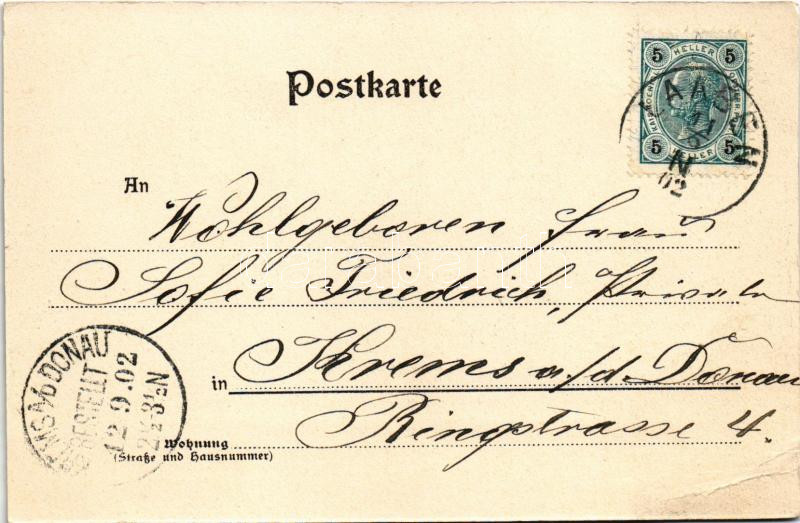 Postkarte
5 HELLER 5
5 HELLER 5
LAA
N
02
An
Wohlgeboren Frau
Sofie Friedrich, Private
in Krems a/d Donau
Ringstrasse 4.
Wohnung
(Straße und Hausnummer)
MS A/D DONAU
BESTELLT
12 9.02
2½ 3½N